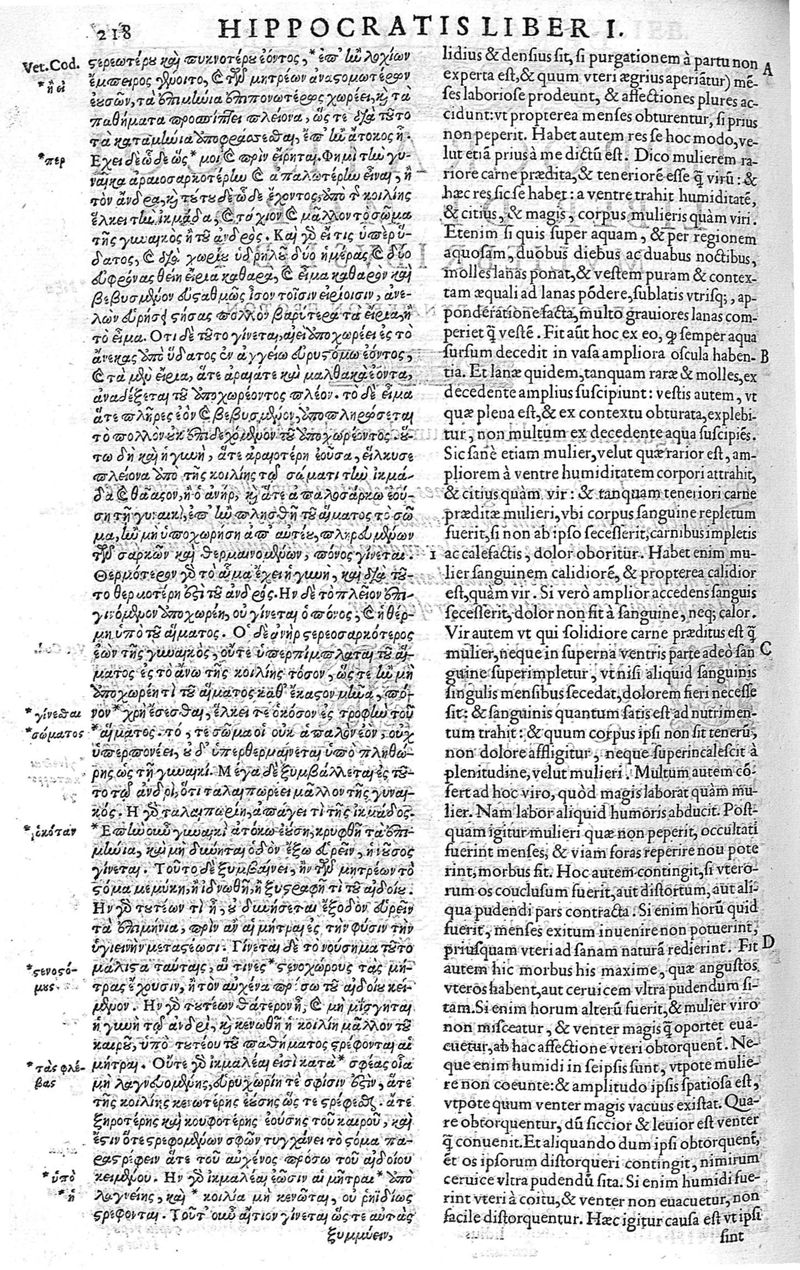 218 HIPPOCRATIS LIBER I.
Vet. Cod.
*ἢ εἰ
*περ
*γίνεσθαι
*σώματος
*ὁκόταν
*στενοστό-
μους
*τὰς φλέ-
βας
*ὑπὸ
*ἡ
στερεωτέρου καὶ πυκνοτέρου ἐόντος, *ἐπὴν λοχίων
ἔμπειρος γένοιτο, καὶ τῶν μητρέων ἀναστομωτέρων
ἐουσῶν, τὰ ἐπιμήνια ἐπιπονωτέρως χωρέει, καὶ τὰ
παθήματα προσπίπτει πλείονα, ὥστε διὰ τοῦτο
τὰ καταμήνια ἀποφράσσεσθαι, ἐπὴν ἄτοκος ᾖ.
Ἔχει δὲ ὧδε ὥς* μοι καὶ πρὶν εἴρηται. Φημὶ τὴν γυ-
ναῖκα ἀραιοσαρκοτέρην καὶ ἁπαλωτέρην εἶναι, ἢ
τὸν ἄνδρα, καὶ τούτου δὲ ὧδε ἔχοντος, ἀπὸ τῆς κοιλίης
ἕλκει τὴν ἰκμάδα, καὶ τάχιον καὶ μᾶλλον τὸ σῶμα
τῆς γυναικὸς ἢ τοῦ ἀνδρός. Καὶ γὰρ εἴ τις ὑπὲρ ὕ-
δατος, καὶ διὰ χωρίου ὑδρηλοῦ δύο ἡμέρας καὶ δύο
εὐφρόνας θείη εἴρια καθαρὰ, καὶ εἷμα καθαρὸν καὶ
βεβυσμένον εὐσταθμῶς ἴσον τοῖσιν εἰρίοισιν, ἀνε-
λὼν εὑρήσει στήσας πολλὸν βαρύτερα τὰ εἴρια, ἢ
τὸ εἷμα. Ὅτι δὲ τοῦτο γίνεται, αἰεὶ ὑποχωρέει ἐς τὸ
ἄνεκας ἀπὸ ὕδατος ἐν ἀγγείῳ εὐρυστόμῳ ἐόντος,
καὶ τὰ μὲν εἴρια, ἅτε ἀραιά τε καὶ μαλθακὰ ἐόντα,
ἀναδέξεται τοῦ ὑποχωρέοντος πλέον. τὸ δὲ εἷμα
ἅτε πλῆρες ἐὸν καὶ βεβυσμένον, ἀποπληρώσεται
τὸ πολλὸν οὐκ ἐπιδεχόμενον τοῦ ὑποχωρέοντος. οὕ-
τω δὴ καὶ ἡ γυνὴ, ἅτε ἀραιοτέρη ἐοῦσα, εἵλκυσε
πλείονα ἀπὸ τῆς κοιλίης τῷ σώματι τὴν ἰκμά-
δα καὶ θᾶσσον, ἢ ὁ ἀνήρ. καὶ ἅτε ἁπαλοσάρκῳ ἐού-
σῃ τῇ γυναικὶ, ἐπὴν πλησθῇ τοῦ αἵματος τὸ σῶ-
μα, ἢν μὴ ὑποχωρήσῃ ἀπ' αὐτέου, πληρουμένων
τῶν σαρκῶν καὶ θερμαινομένων, πόνος γίνεται.
Θερμότερον γὰρ τὸ αἷμα ἔχει ἡ γυνὴ, καὶ διὰ τοῦ-
το θερμοτέρη ἐστὶ τοῦ ἀνδρός. Ἢν δὲ τὸ πλεῖον ἐπι-
γινόμενον ὑποχωρέῃ, οὐ γίνεται ὁ πόνος, καὶ ἡ θέρ-
μη ὑπὸ τοῦ αἵματος. Ὁ δὲ ἀνὴρ στερεοσαρκότερος
ἐὼν τῆς γυναικὸς, οὔτε ὑπερπίμπλαται τοῦ αἵ-
ματος ἐς τὸ ἄνω τῆς κοιλίης τόσον, ὥστε ἢν μὴ
ὑποχωρέῃ τι τοῦ αἵματος καθ' ἕκαστον μῆνα, πό-
νον* χρὴ ἔσεσθαι, ἕλκει τε ὁκόσον ἐς τροφὴν τοῦ
*αἵματος. τό, τε σῶμά οἱ οὐκ ἁπαλὸν ἐὸν, οὐχ
ὑπερπονέει, οὐδ' ὑπερθερμαίνεται ὑπὸ πληθώ-
ρης ὡς τῇ γυναικί. Μέγα δὲ ξυμβάλλεται ἐς τοῦ-
το τῷ ἀνδρὶ, ὅτι ταλαιπωρέει μᾶλλον τῆς γυναι-
κός. Ἡ γὰρ ταλαιπωρίη ἀπάγει τι τῆς ἰκμάδος.
*Ἐπὴν οὖν γυναικὶ ἀτόκῳ ἐούσῃ, κρυφθῇ τὰ ἐπι-
μήνια, καὶ μὴ δύνηται ὁδὸν ἔξω εὑρεῖν, ἡ νοῦσος
γίνεται. Τοῦτο δὲ ξυμβαίνει, ἢν τῶν μητρέων τὸ
στόμα μεμύκῃ, ἢ ἰδνωθῇ, ἢ ξυστραφῇ τι τοῦ αἰδοίου.
Ἢν γὰρ τουτέων τι ᾖ, οὐ δυνήσεται ἔξοδον εὑρεῖν
τὰ ἐπιμήνια, πρὶν ἂν αἱ μῆτραι ἐς τὴν φύσιν τὴν
ὑγιεινὴν μεταστέωσι. Γίνεται δὲ τὸ νούσημα τοῦτο
μάλιστα ταύταις, αἵ τινες *στενοχώρους τὰς μή-
τρας ἔχουσιν, ἢ τὸν αὐχένα πρόσω τοῦ αἰδοίου κεί-
μενον. Ἢν γὰρ τουτέων θάτερον ᾖ, καὶ μὴ μίσγηται
ἡ γυνὴ τῷ ἀνδρὶ, καὶ κενωθῇ ἡ κοιλίη μᾶλλον τοῦ
καιροῦ, ὑπὸ τουτέου τοῦ παθήματος στρέφονται αἱ
μῆτραι. Οὔτε γὰρ ἰκμαλέαι εἰσὶ κατὰ* σφέας οἷα
μὴ λαγνευόμεναι, εὐρυχωρίη τέ σφισιν ἐστὶν, ἅτε
τῆς κοιλίης κενωτέρης ἐούσης ὥστε στρέφεσθαι. ἅτε
ξηροτέρης καὶ κουφοτέρης ἐούσης τοῦ καιροῦ, καὶ
ἔστιν ὅτε στρεφομένων σφῶν τυγχάνει τὸ στόμα πα-
ραστρέφειν ἅτε τοῦ αὐχένος πρόσω τοῦ αἰδοίου
κειμένου. Ἢν γὰρ ἰκμαλέαι ἔωσιν αἱ μῆτραι* ἀπὸ
λαγνείης, καὶ* κοιλία μὴ κενῶται, οὐ ῥηϊδίως
στρέφονται. Τοῦτ' οὖν αἴτιον γίνεται ὥστε αὐτὰς
ξυμμύειν,
lidius & densius sit, si purgationem à partu non
experta est, & quum vteri ægrius aperiātur) mē-
ses laboriose prodeunt, & affectiones plures ac-
cidunt: vt propterea menses obturentur, si prius
non peperit. Habet autem res se hoc modo, ve-
lut etiā prius à me dictū est. Dico mulierem ra-
riore carne prædita, & teneriorē esse q̃ virū: &
hæc res sic se habet: a ventre trahit humiditatē,
& citius, & magis, corpus mulieris quàm viri.
Etenim si quis super aquam, & per regionem
aquosam, duobus diebus ac duabus noctibus,
molles lanas ponat, & vestem puram & contex-
tam æquali ad lanas pōdere, sublatis vtrisq;, ap-
ponderatione facta, multo grauiores lanas com-
periet q̃ vestē. Fit aūt hoc ex eo, ꝙ semper aqua
sursum decedit in vasa ampliora oscula haben-
tia. Et lanæ quidem, tanquam raræ & molles, ex
decedente amplius suscipiunt: vestis autem, vt
quæ plena est, & ex contextu obturata, explebi-
tur, non multum ex decedente aqua suscipiēs.
Sic sanè etiam mulier, velut quæ rarior est, am-
pliorem à ventre humiditatem corpori attrahit,
& citius quàm vir: & tanquam teneriori carne
præditæ mulieri, vbi corpus sanguine repletum
fuerit, si non ab ipso secesserit, carnibus impletis
1 ac calefactis, dolor oboritur. Habet enim mu-
lier sanguinem calidiorē, & propterea calidior
est, quàm vir. Si verò amplior accedens sanguis
secesserit, dolor non fit à sanguine, neq; calor.
Vir autem vt qui solidiore carne præditus est q̃
mulier, neque in superna ventris parte adeò san
guine superimpletur, vt nisi aliquid sanguinis
singulis mensibus secedat, dolorem fieri necesse
sit: & sanguinis quantum satis est ad nutrimen-
tum trahit: & quum corpus ipsi non sit tenerū,
non dolore affligitur, neque superincalescit à
plenitudine, velut mulieri. Multum autem cō-
fert ad hoc viro, quòd magis laborat quàm mu-
lier. Nam labor aliquid humoris abducit. Post-
quam igitur mulieri quæ non peperit, occultati
fuerint menses, & viam foras reperire nou pote
rint, morbus fit. Hoc autem contingit, si vtero-
rum os couclusum fuerit, aut distortum, aut ali-
qua pudendi pars contracta. Si enim horū quid
fuerit, menses exitum inuenire non potuerint,
priusquam vteri ad sanam naturā redierint. Fit
autem hic morbus his maxime, quæ angustos
vteros habent, aut ceruicem vltra pudendum si-
tam. Si enim horum alterū fuerit, & mulier viro
non misceatur, & venter magis q̃ oportet eua-
cuetur, ab hac affectione vteri obtorquent̃. Ne-
que enim humidi in seipsis sunt, vtpote mulie-
re non coeunte: & amplitudo ipsis spatiosa est,
vtpote quum venter magis vacuus existat. Qua-
re obtorquentur, dū siccior & leuior est venter
q̃ conuenit. Et aliquando dum ipsi obtorquent,
et os ipsorum distorqueri contingit, nimirum
ceruice vltra pudendū sita. Si enim humidi fue-
rint vteri à coitu, & venter non euacuetur, non
facile distorquentur. Hæc igitur causa est vt ipsi
sint
A
B
C
D